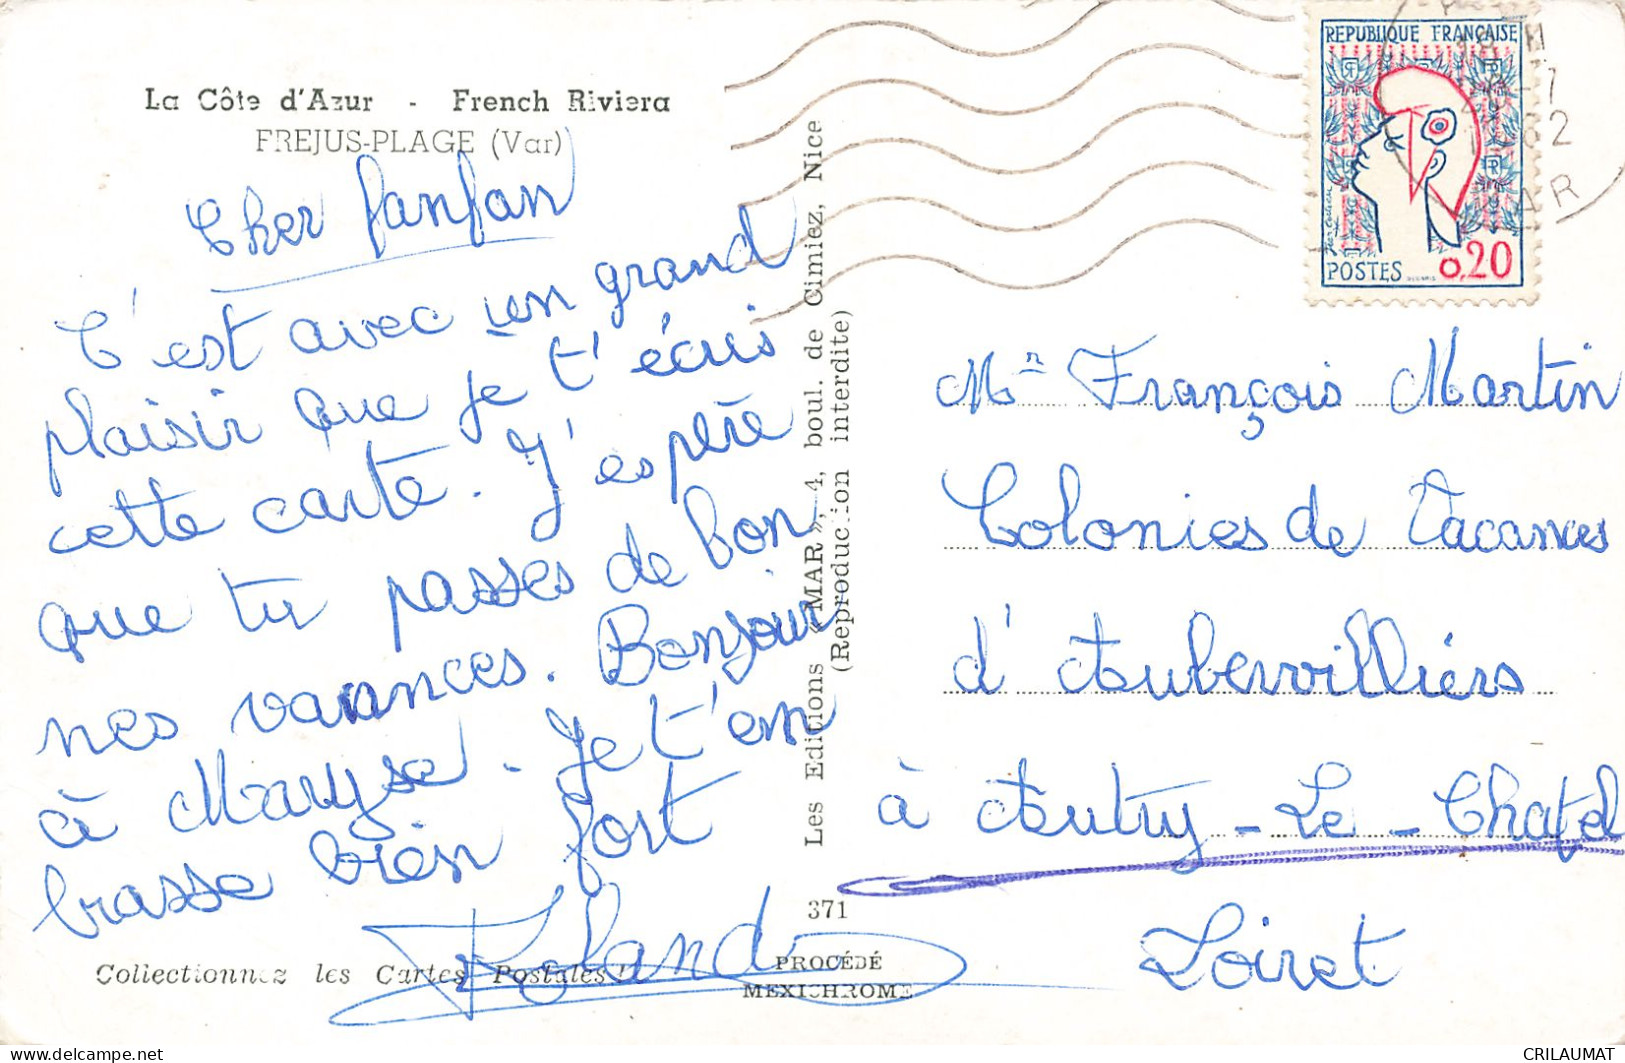 La Côte d'Azur - French Riviera
FREJUS-PLAGE (Var)
Cher fanfan
C'est avec un grand
plaisir que je t'écris
cette carte. J'espère
que tu passes de bon
nes vacances. Bonjour
à Maryse. Je t'em
brasse bien fort
Roland
Collectionnez les Cartes Postales!
Les Editions « MAR », 4, boul. de Cimiez, Nice
(Reproduction interdite)
371
PROCÉDÉ
MEXICHROME
REPUBLIQUE FRANÇAISE
POSTES 0,20
VAR
Mr François Martin
Colonies de Vacances
d'Aubervilliers
à Autry-Le-Chatel
Loiret
delcampe.net
CRILAUMAT